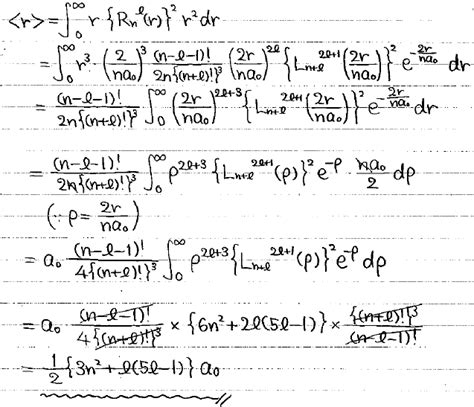 <r> = ∫₀^∞ r {Rₙ^ℓ(r)}² r² dr
= ∫₀^∞ r³ · (2/na₀)³ (n-ℓ-1)!/2n{(n+ℓ)!}³ (2r/na₀)^2ℓ {L_n+ℓ^2ℓ+1(2r/na₀)}² e^-2r/na₀ dr
= (n-ℓ-1)!/2n{(n+ℓ)!}³ ∫₀^∞ (2r/na₀)^2ℓ+3 {L_n+ℓ^2ℓ+1(2r/na₀)}² e^-2r/na₀ dr
= (n-ℓ-1)!/2n{(n+ℓ)!}³ ∫₀^∞ ρ^2ℓ+3 {L_n+ℓ^2ℓ+1(ρ)}² e^-ρ · na₀/2 dρ
(∵ ρ = 2r/na₀)
= a₀ (n-ℓ-1)!/4{(n+ℓ)!}³ ∫₀^∞ ρ^2ℓ+3 {L_n+ℓ^2ℓ+1(ρ)}² e^-ρ dρ
= a₀ (n-ℓ-1)!/4{(n+ℓ)!}³ × {6n²+2ℓ(5ℓ-1)} × {(n+ℓ)!}³/(n-ℓ-1)!
= 1/2 {3n²+ℓ(5ℓ-1)} a₀